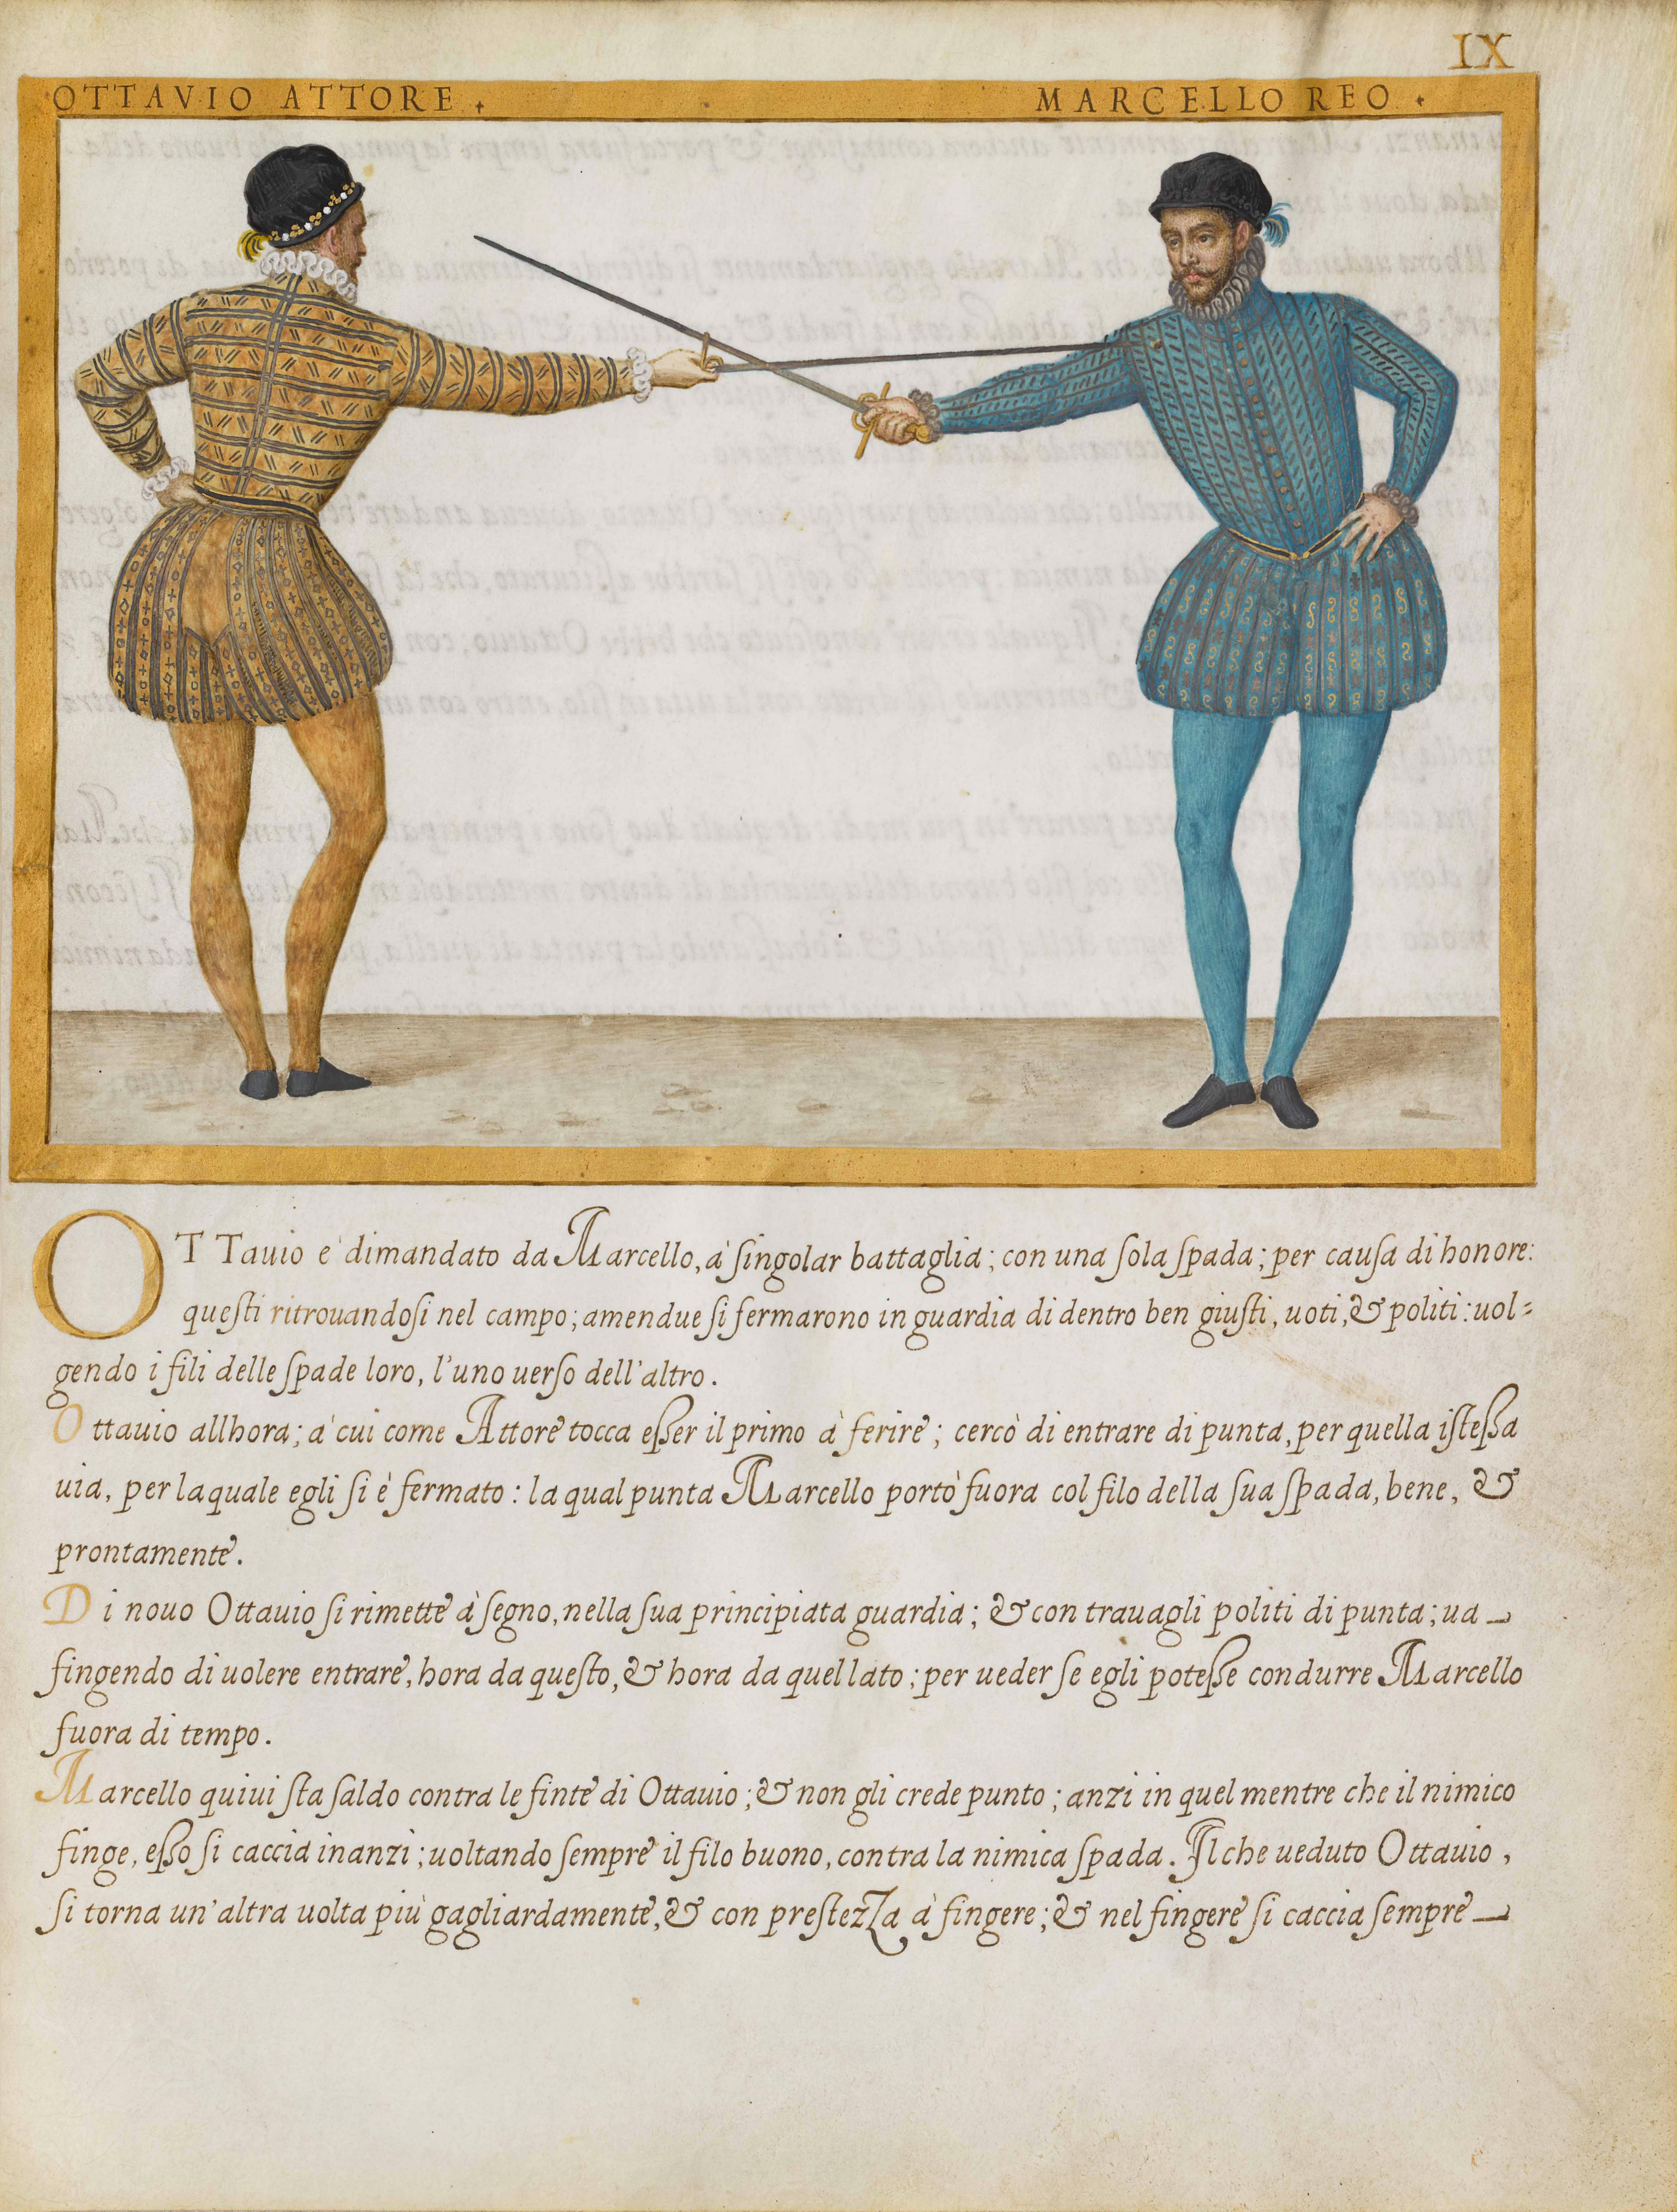 IX
OTTAVIO ATTORE.
MARCELLO REO.
OTTauio e' dimandato da Marcello, à ſingolar battaglia; con una ſola ſpada; per cauſa di honore:
queſti ritrouandoſi nel campo; amendue ſi fermarono in guardia di dentro ben giuſti, uoti, & politi: uol=
gendo i fili delle ſpade loro, l'uno uerſo dell'altro.
Ottauio allhora; a' cui come Attore tocca eſſer il primo à ferire; cercò di entrare di punta, per quella iſteſſa
uia, per laquale egli ſi è fermato: la qual punta Marcello portò fuora col filo della ſua ſpada, bene, &
prontamente.
Di nouo Ottauio ſi rimette à ſegno, nella ſua principiata guardia; & con trauagli politi di punta; ua
fingendo di uolere entrare, hora da queſto, & hora da quel lato; per ueder ſe egli poteſſe condurre Marcello
fuora di tempo.
Marcello quiui ſta ſaldo contra le finte di Ottauio; & non gli crede punto; anzi in quel mentre che il nimico
finge, eſſo ſi caccia inanzi; uoltando ſempre il filo buono, contra la nimica ſpada. Il che ueduto Ottauio,
ſi torna un'altra uolta più gagliardamente, & con preſtezza à fingere; & nel fingere ſi caccia ſempre